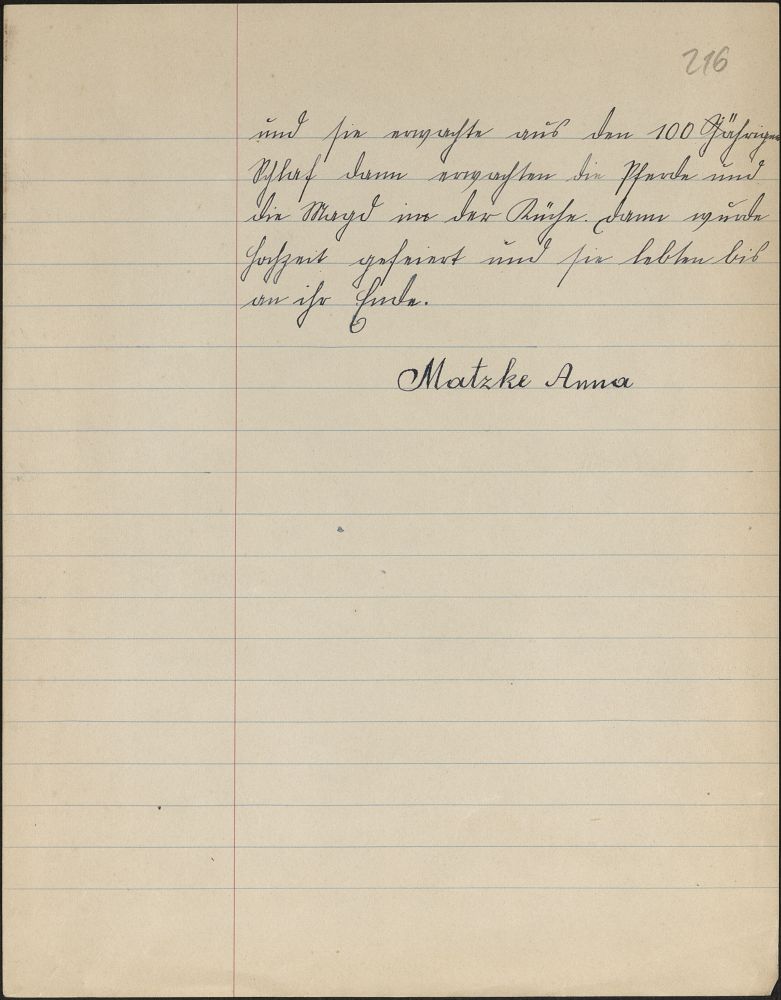 216
und sie erwachte aus den 100 Jährigen
Schlaf dann erwachten die Pferde und
die Magd in der Küche. dann wurde
Hochzeit gefeiert und sie lebten bis
an ihr Ende.
Matzke Anna